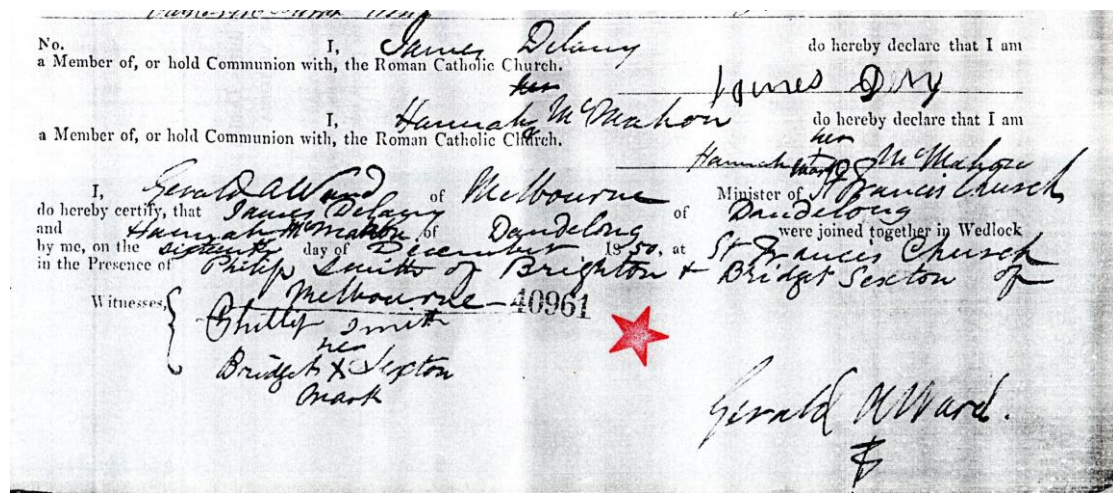 No. I, James Delany do hereby declare that I am
a Member of, or hold Communion with, the Roman Catholic Church.
James
her
I, Hannah McMahon do hereby declare that I am
a Member of, or hold Communion with, the Roman Catholic Church.
her
Hannah X McMahon
mark
I, Gerald A Ward of Melbourne Minister of St Francis Church
do hereby certify, that James Delany of Dandelong
and Hannah McMahon of Dandelong were joined together in Wedlock
by me, on the sixteenth day of December 1850. at St Francis Church
in the Presence of Philip Smith of Brighton + Bridget Sexton of
Melbourne 40961
Witnesses,
Phillip Smith
her
Bridget X Sexton
mark
Gerald A Ward.